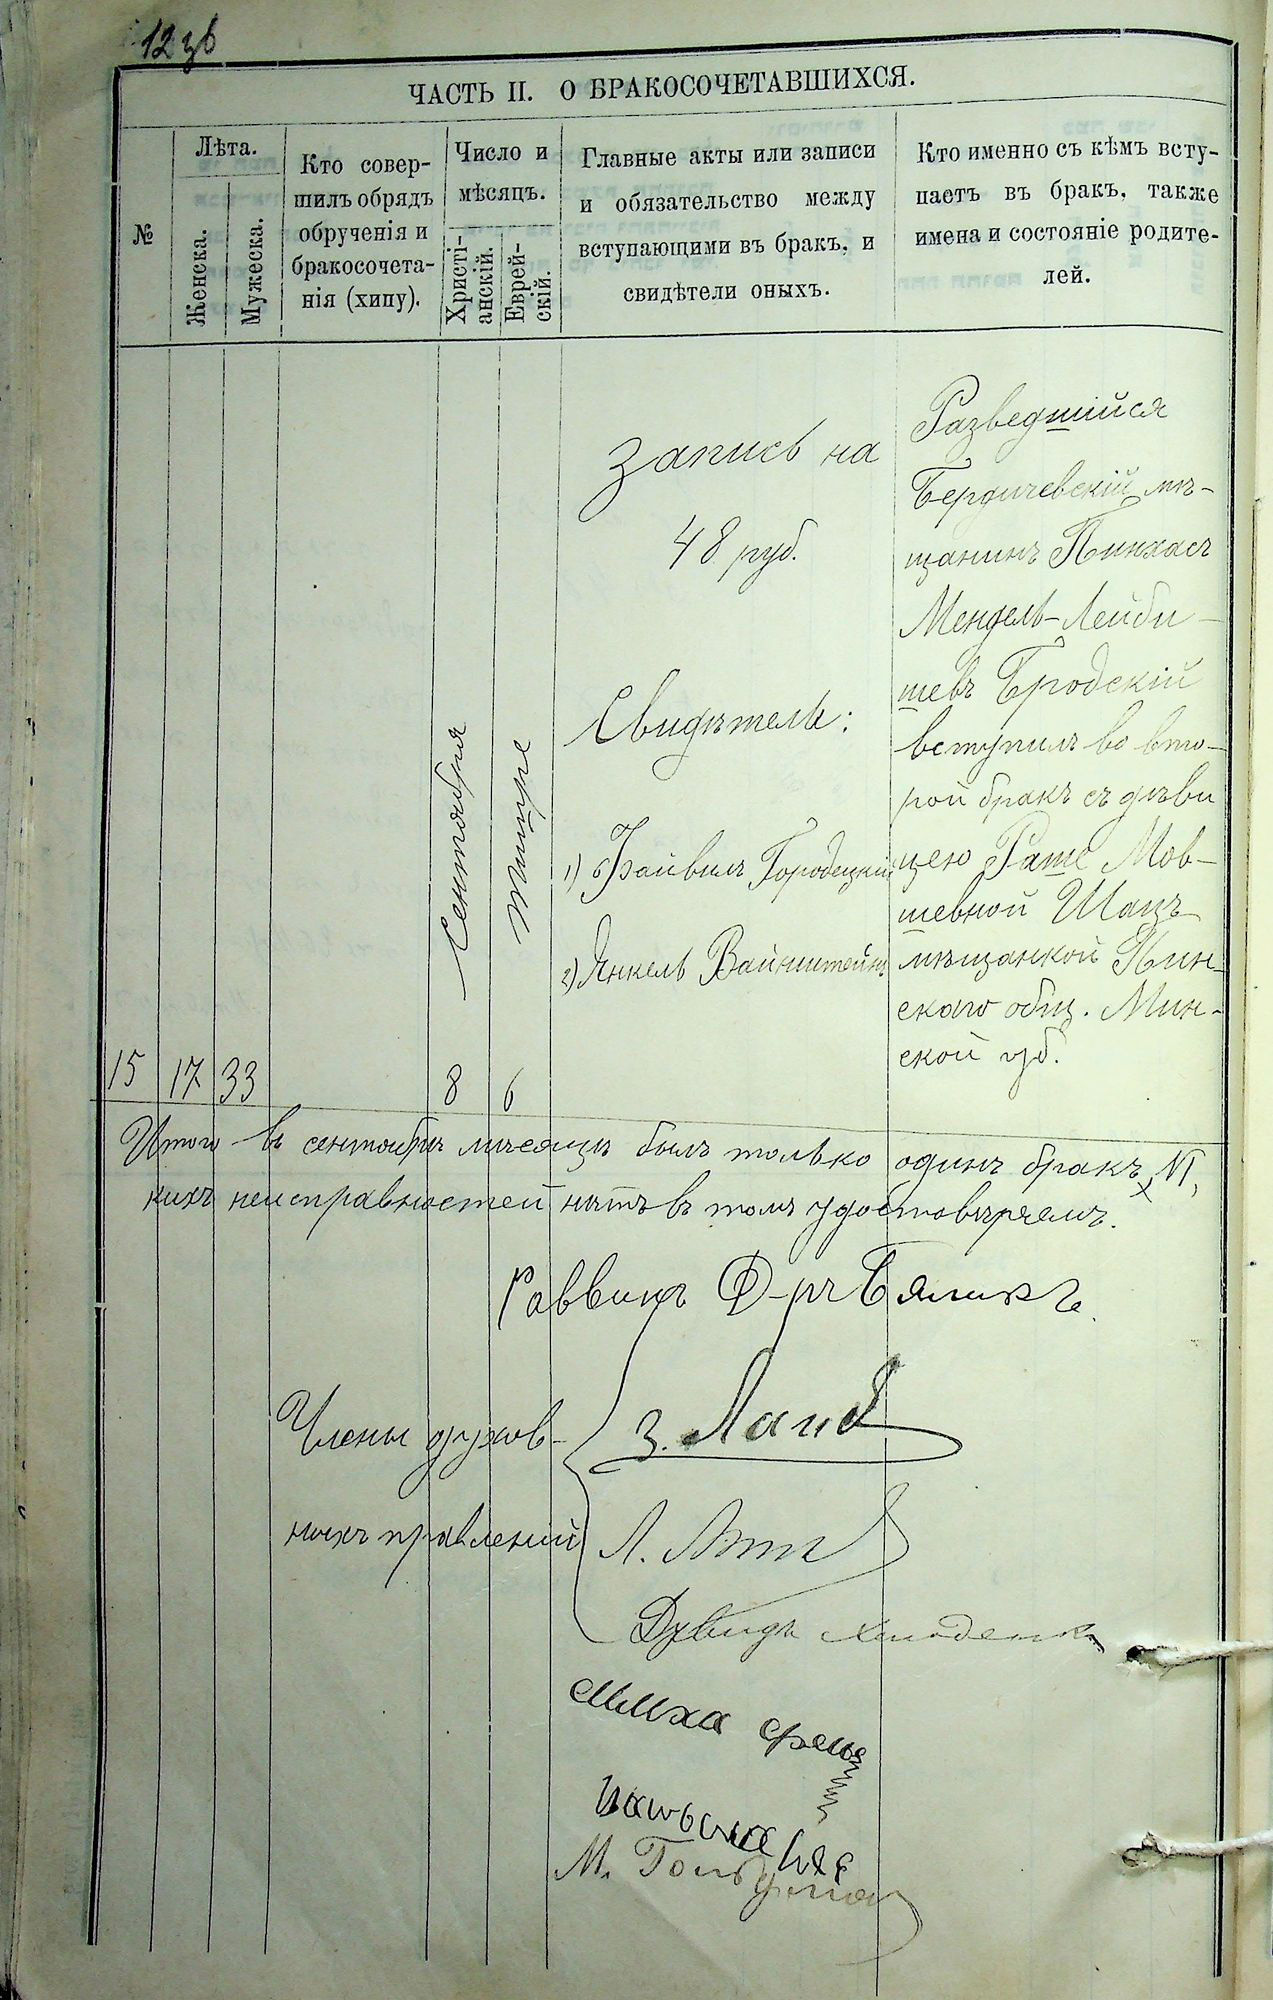 12 зв
ЧАСТЬ II. О БРАКОСОЧЕТАВШИХСЯ.
№
Лѣта.
Женска.
Мужеска.
Кто совер-
шилъ обрядъ
обрученія и
бракосочета-
нія (хипу).
Число и
мѣсяцъ.
Христі-
анскій.
Еврей-
скій.
Главные акты или записи
и обязательство между
вступающими въ бракъ, и
свидѣтели оныхъ.
Кто именно съ кѣмъ всту-
паетъ въ бракъ, также
имена и состояніе родите-
лей.
15
17
33
Сентября
8
Тишре
6
Запись на
48 руб.
Свидѣтели:
1) Файвилъ Городецкій
2) Янкель Вайнштейнъ
Разведшійся
Бердичевскій мѣ-
щанинъ Пинхасъ
Мендель-Лейби-
шевъ Бродскій
вступилъ во вто-
рой бракъ съ дѣви
цею Раше Мов-
шевной Шацъ
мѣщанкой Пин-
скаго общ. Мин-
ской губ.
Итого въ сентябрѣ мѣсяцѣ былъ только одинъ бракъ,
кихъ неисправностей нѣтъ въ томъ удостовѣряемъ.
Раввинъ Д-ръ Бяликъ.
Члены духов-
ныхъ правленій
З. Ланд
Л.
Дувидъ
М.